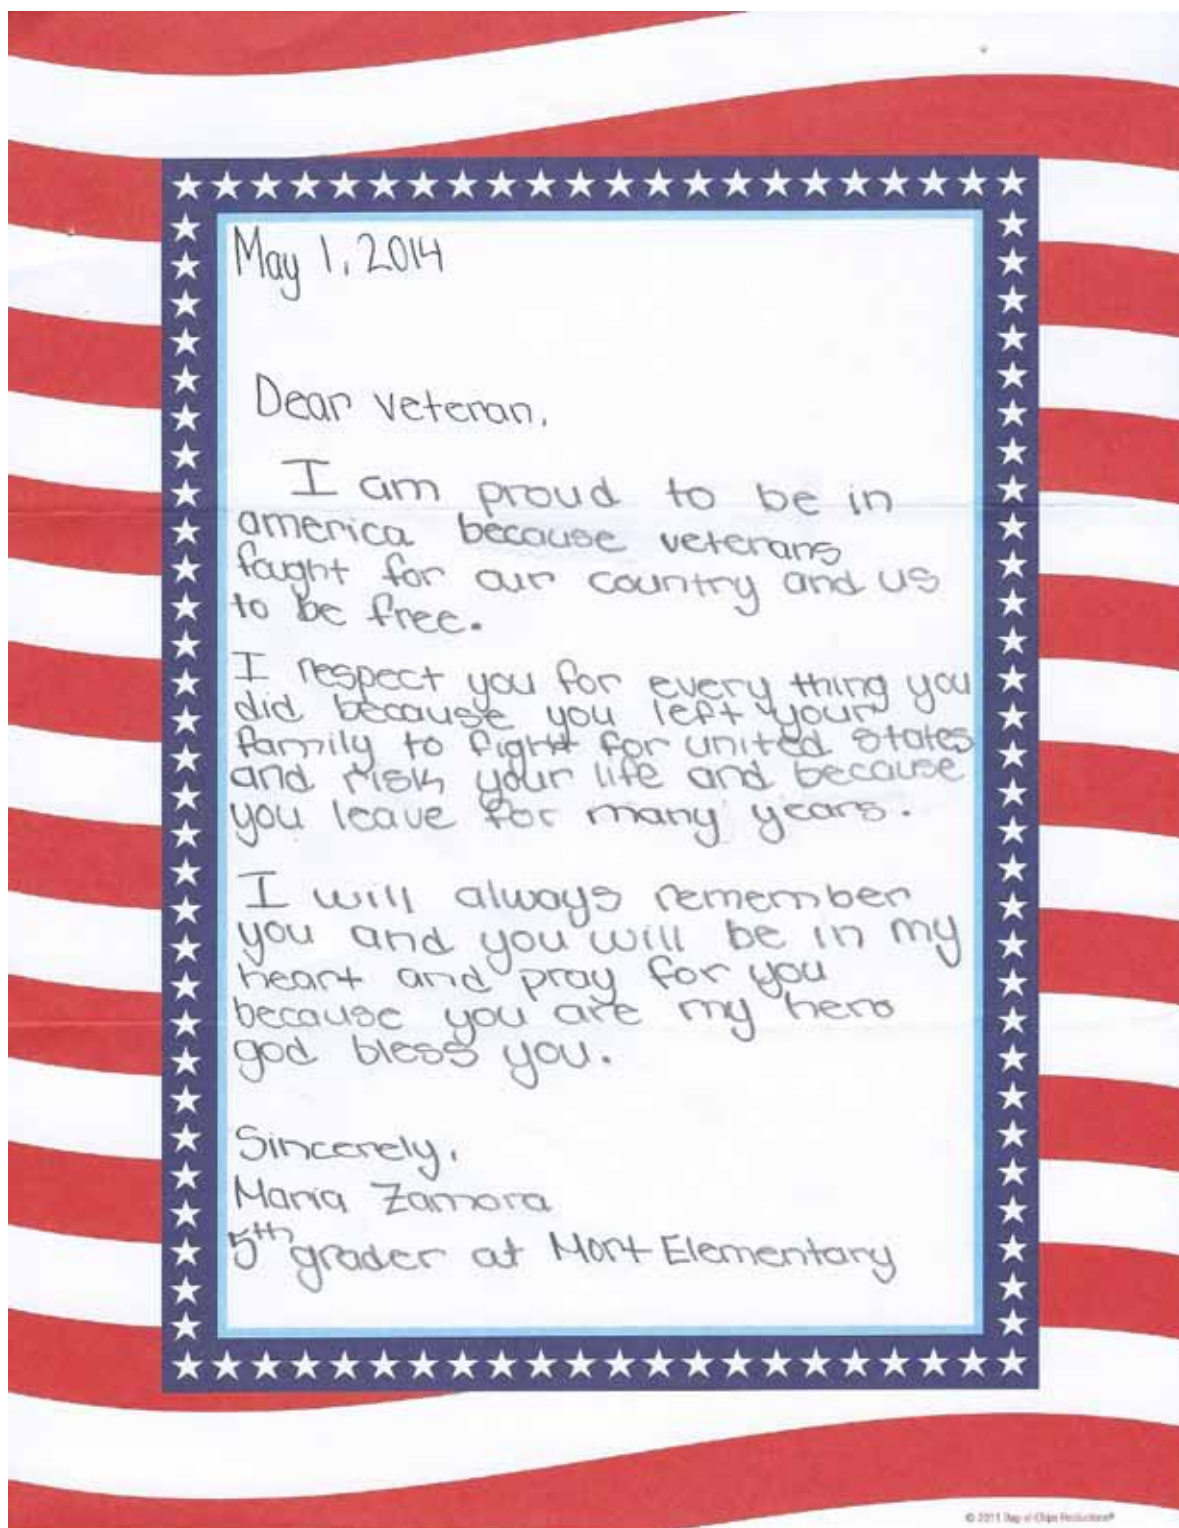 May 1, 2014
Dear veteran,
I am proud to be in
america because veterans
faught for our country and us
to be free.
I respect you for every thing you
did because you left your
family to fight for united states
and risk your life and because
you leave for many years.
I will always remember
you and you will be in my
heart and pray for you
because you are my hero
god bless you.
Sincerely,
Maria Zamora
5th grader at Mort Elementary
© 2011